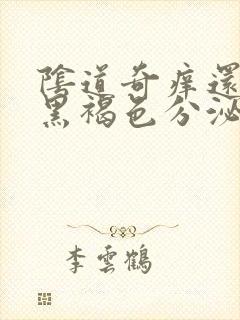 陰道奇痒還
黑褐色分泌
李雲鶴